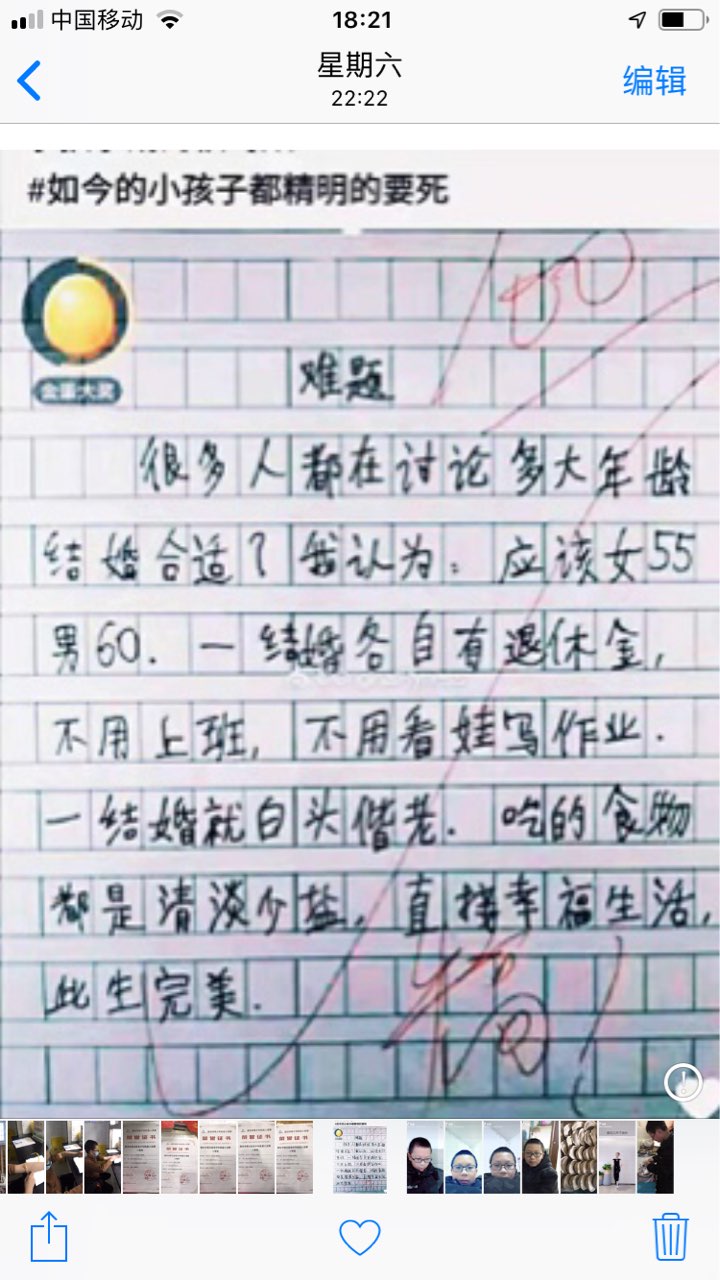 中国移动 18:21
星期六
22:22
编辑
#如今的小孩子都精明的要死
100
金蛋大奖
难题
很多人都在讨论多大年龄
结婚合适?我认为:应该女55
男60.一结婚各自有退休金,
不用上班,不用看娃写作业.
一结婚就白头偕老.吃的食物
都是清淡少盐,直接幸福生活,
此生完美.